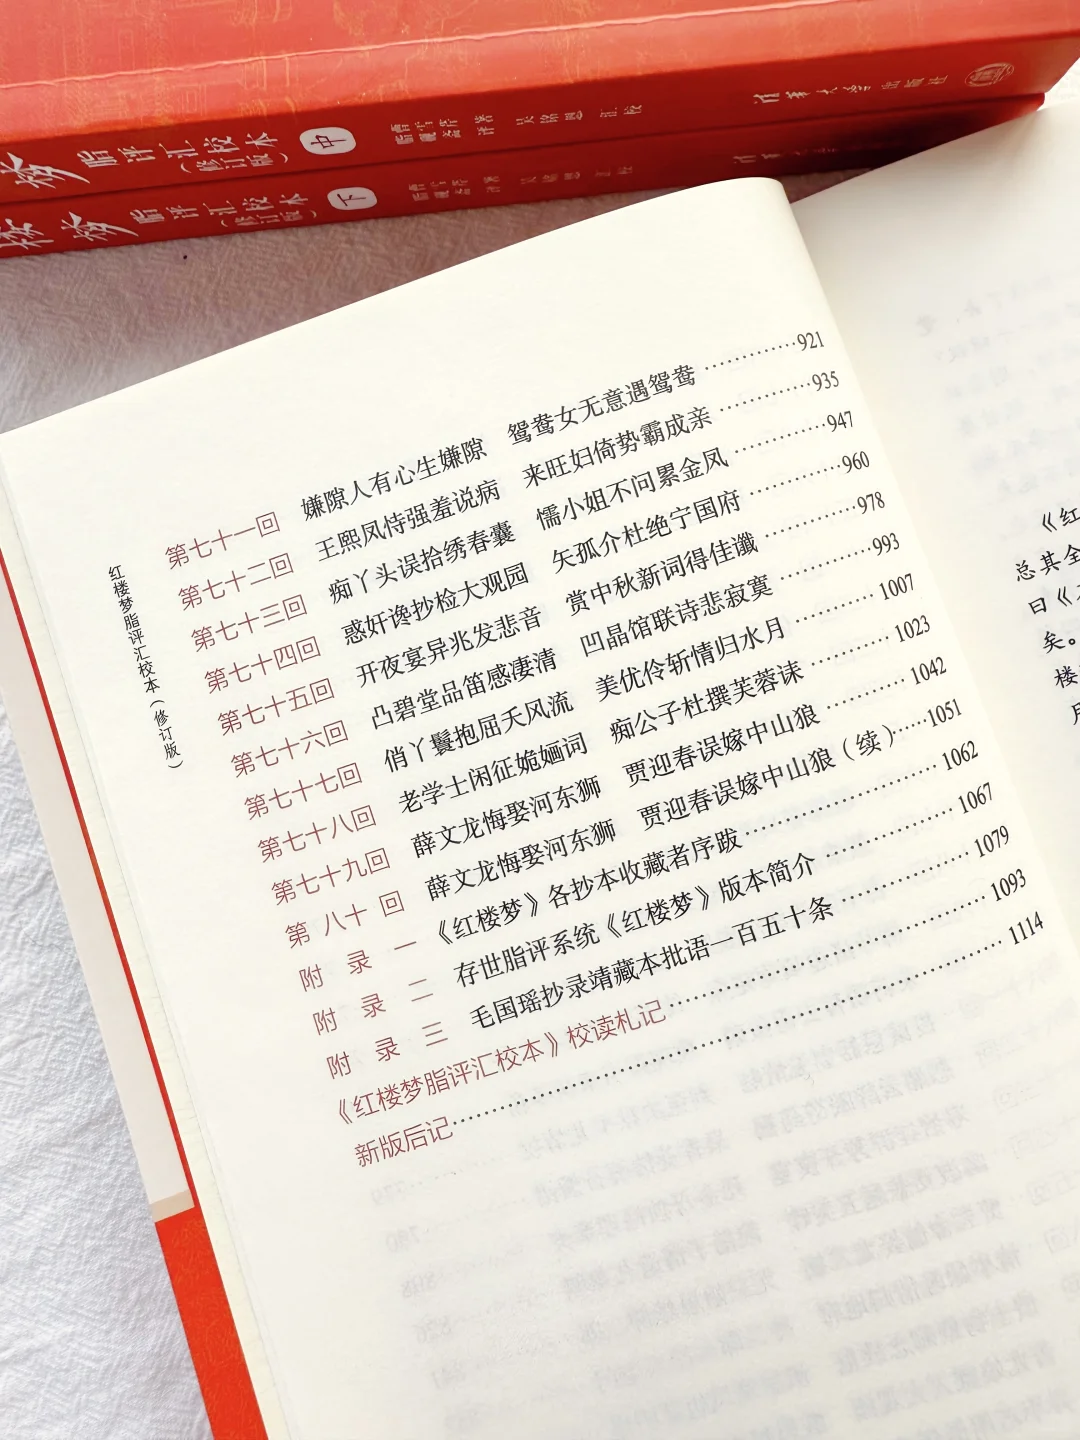 梦 脂评汇校本(修订版) 中 曹雪芹 著 脂砚斋 评 吴铭恩 汇校 清华大学出版社
楼梦 脂评汇校本(修订版) 下
红楼梦脂评汇校本(修订版)
第七十一回 嫌隙人有心生嫌隙 鸳鸯女无意遇鸳鸯 …………921
第七十二回 王熙凤恃强羞说病 来旺妇倚势霸成亲 …………935
第七十三回 痴丫头误拾绣春囊 懦小姐不问累金凤 …………947
第七十四回 惑奸谗抄检大观园 矢孤介杜绝宁国府 …………960
第七十五回 开夜宴异兆发悲音 赏中秋新词得佳谶 …………978
第七十六回 凸碧堂品笛感凄清 凹晶馆联诗悲寂寞 …………993
第七十七回 俏丫鬟抱屈夭风流 美优伶斩情归水月 …………1007
第七十八回 老学士闲征姽婳词 痴公子杜撰芙蓉诔 …………1023
第七十九回 薛文龙悔娶河东狮 贾迎春误嫁中山狼 …………1042
第八十回 薛文龙悔娶河东狮 贾迎春误嫁中山狼(续)……1051
附录一 《红楼梦》各抄本收藏者序跋…………1062
附录二 存世脂评系统《红楼梦》版本简介 …………1067
附录三 毛国瑶抄录靖藏本批语一百五十条 …………1079
《红楼梦脂评汇校本》校读札记…………1093
新版后记…………1114
《红
总其全
曰《
矣。
楼